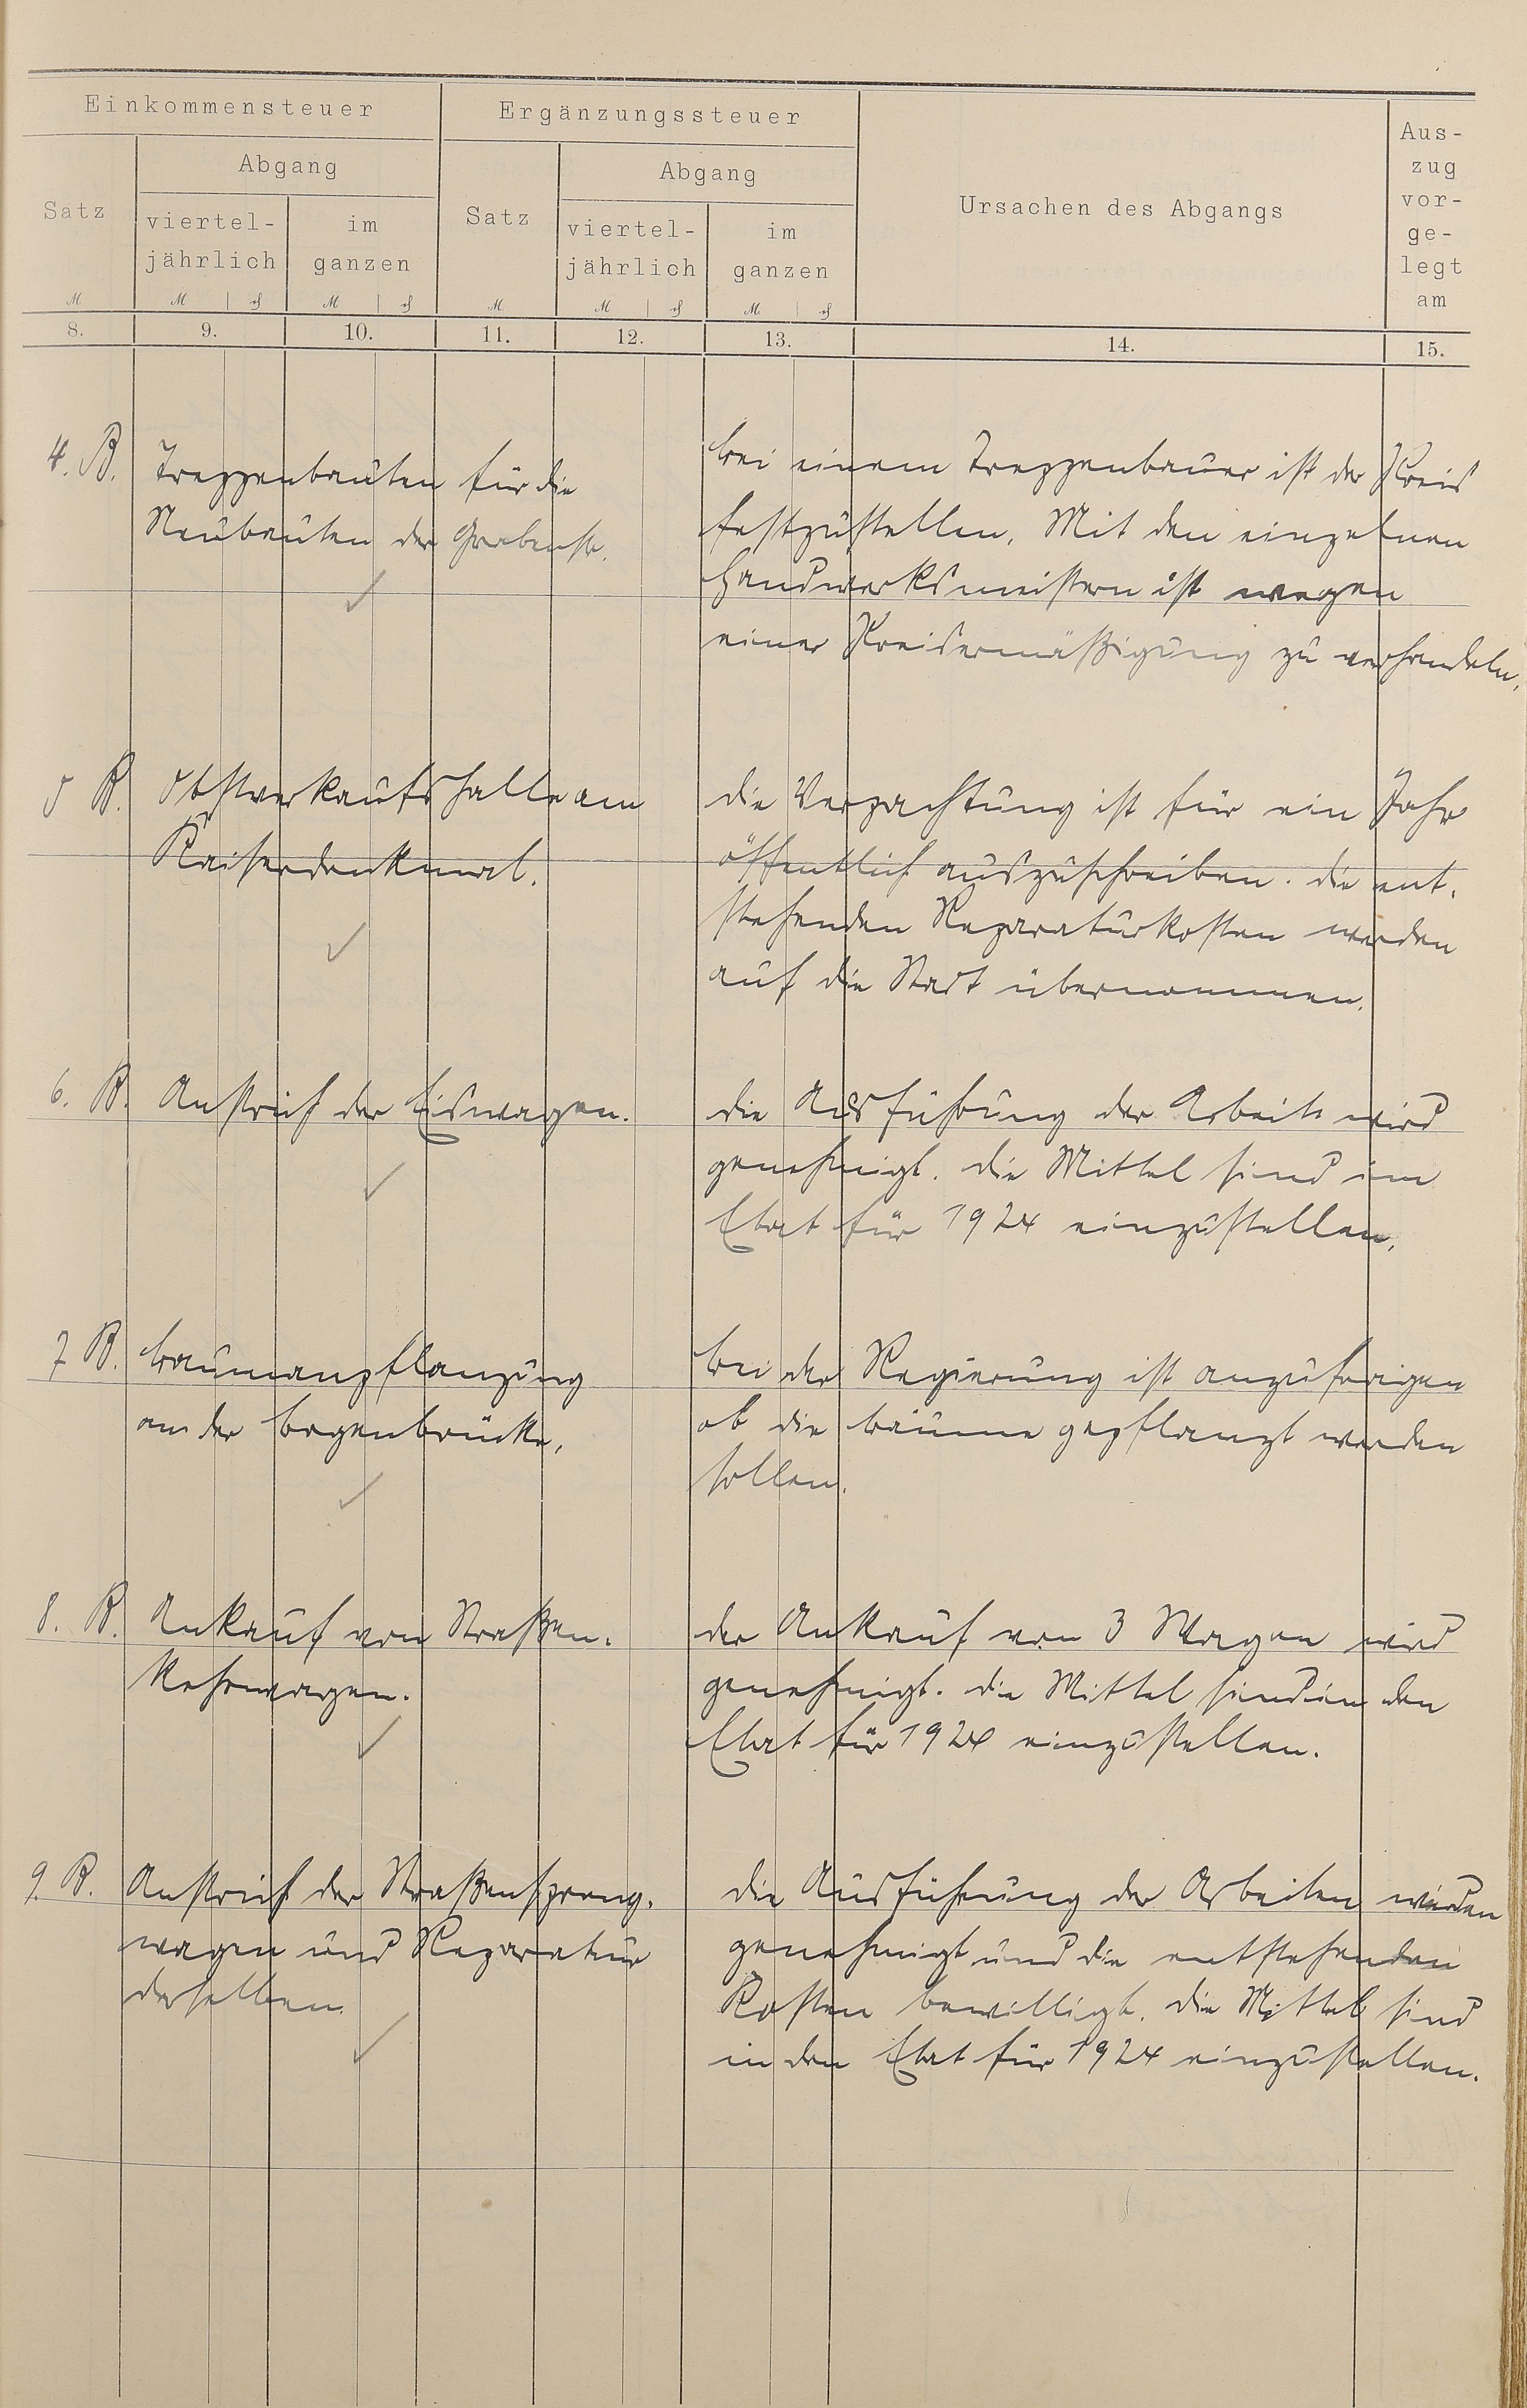 Einkommensteuer
Ergänzungssteuer
Ursachen des Abgangs
Aus-
zug
vor-
ge-
legt
am
Satz
Abgang
viertel-
jährlich
im
ganzen
Satz
Abgang
viertel-
jährlich
im
ganzen
M
M
M
M
M
M
8. 9. 10. 11. 12. 13. 14. 15.
4. B. Treppenbauten für die
Neubauten der Grabenstr.
bei einem Treppenbauer ist der Preis
festzustellen. Mit den einzelnen
Handwerksmeistern ist wegen
einer Preisermäßigung zu verhandeln.
5 B. Obstverkaufshalle am
Kaiserdenkmal.
die Verpachtung ist für ein Jahr
öffentlich auszuschreiben. die ent-
stehenden Reparaturkosten werden
auf die Stadt übernommen.
6. B. Anstrich der Eiswagen.
die Ausführung der Arbeit wird
genehmigt. die Mittel sind im
Etat für 1924 einzustellen.
7 B. baumanpflanzung
an der bogenbrücke.
bei der Regierung ist anzufragen
ob die bäume gepflanzt werden
sollen.
8. B. Ankauf von Straßen-
kehrwagen.
der Ankauf von 3 Wagen wird
genehmigt. die Mittel sind in den
Etat für 1924 einzustellen.
9. B. Anstrich der Straßenspreng-
wagen und Reparatur
derselben.
die Ausführung der Arbeiten werden
genehmigt und die entstehenden
Kosten bewilligt. die Mittel sind
in den Etat für 1924 einzustellen.